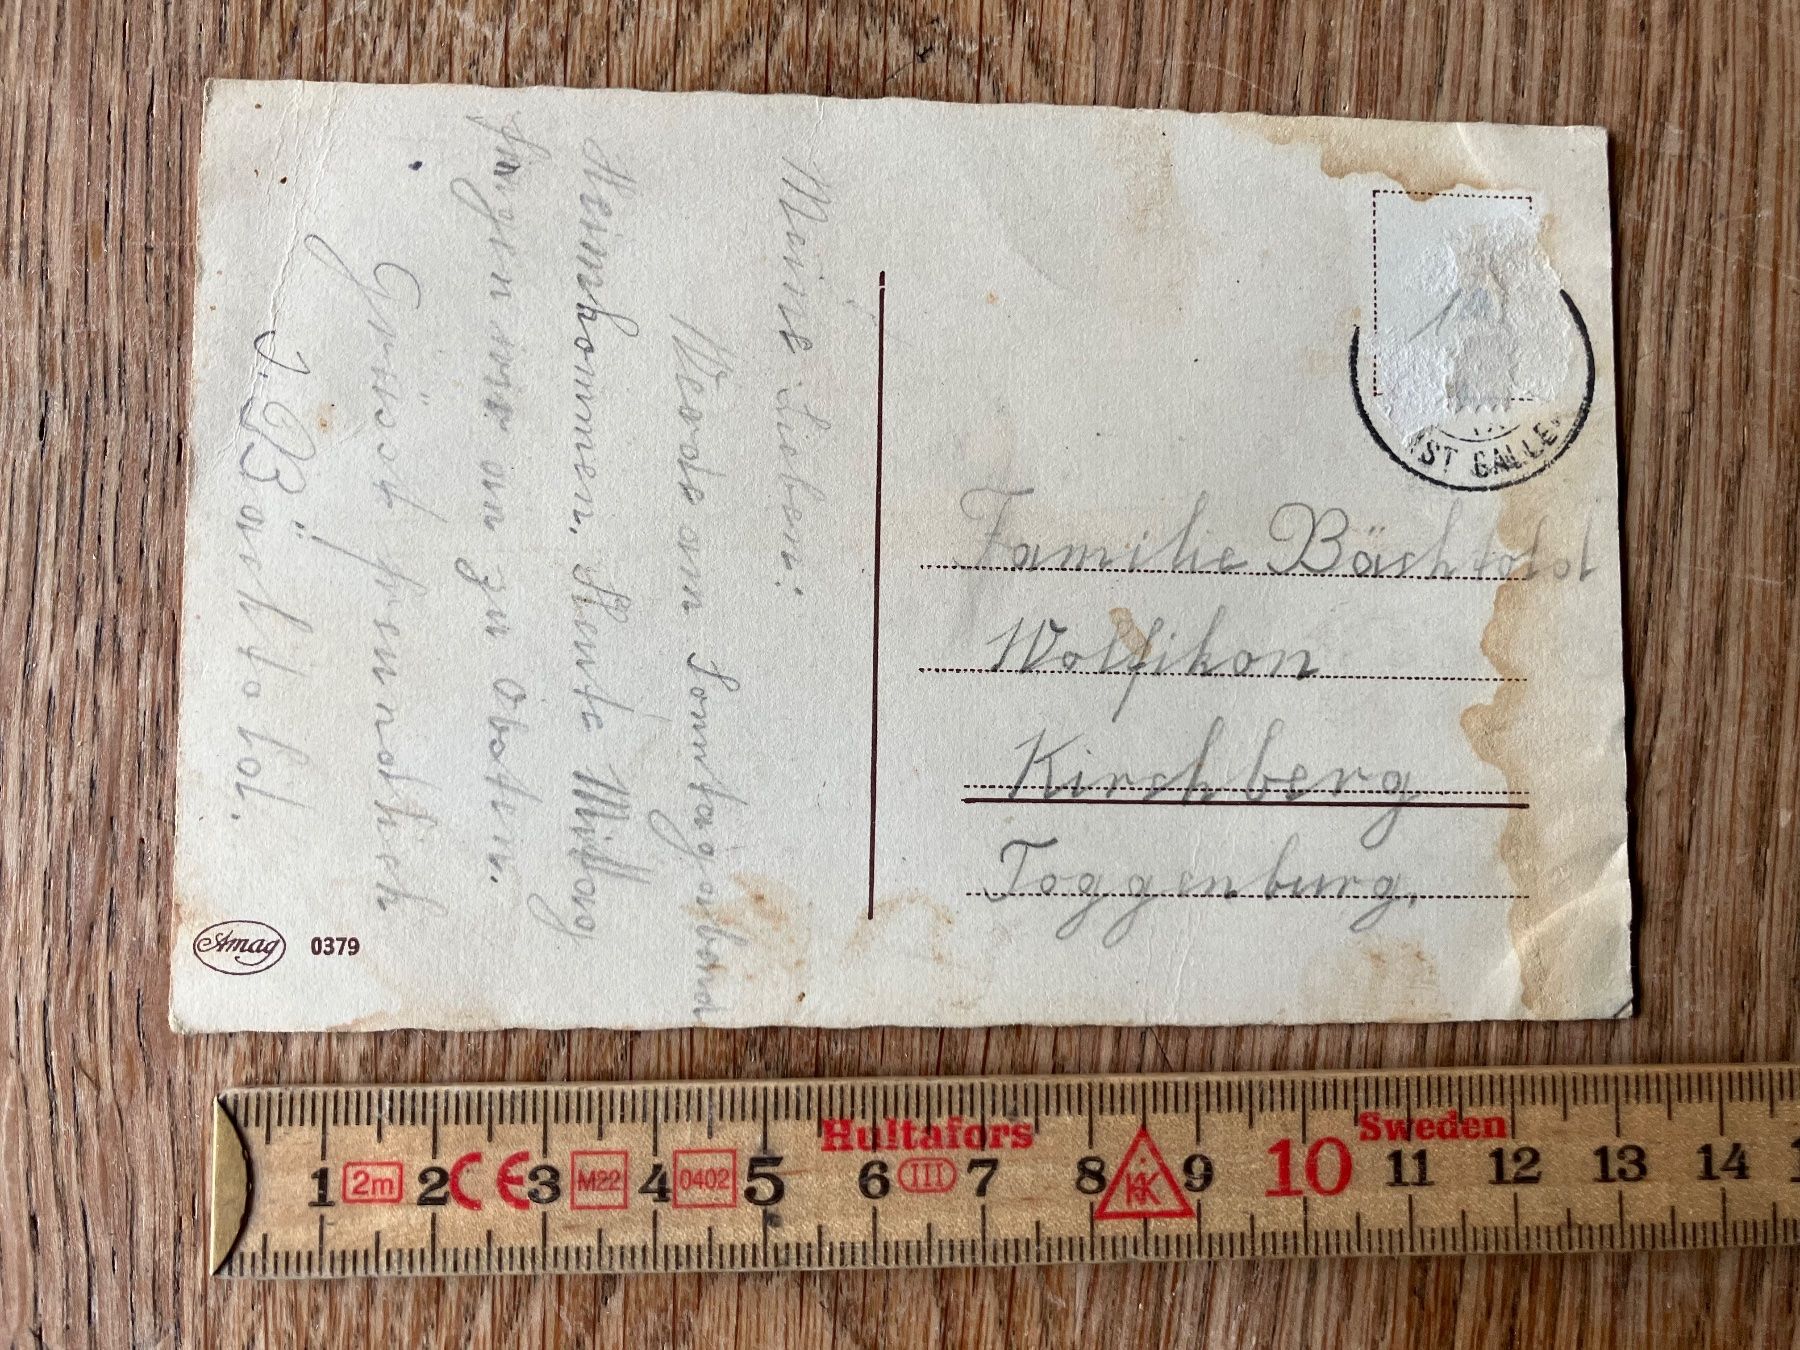 Meine Lieben!
Werde am Sonntag abend
Heimkommen. Heute Mittag
fingen wir an zu
Grüsst freundlich
J. Bächtold.
Familie Bächtold
Wolfikon
Kirchberg
Toggenburg.
ST GALLE
Amag 0379
Hultafors Sweden
1 2m 2 CE 3 M22 4 0402 5 6 III 7 8 9 10 11 12 13 14